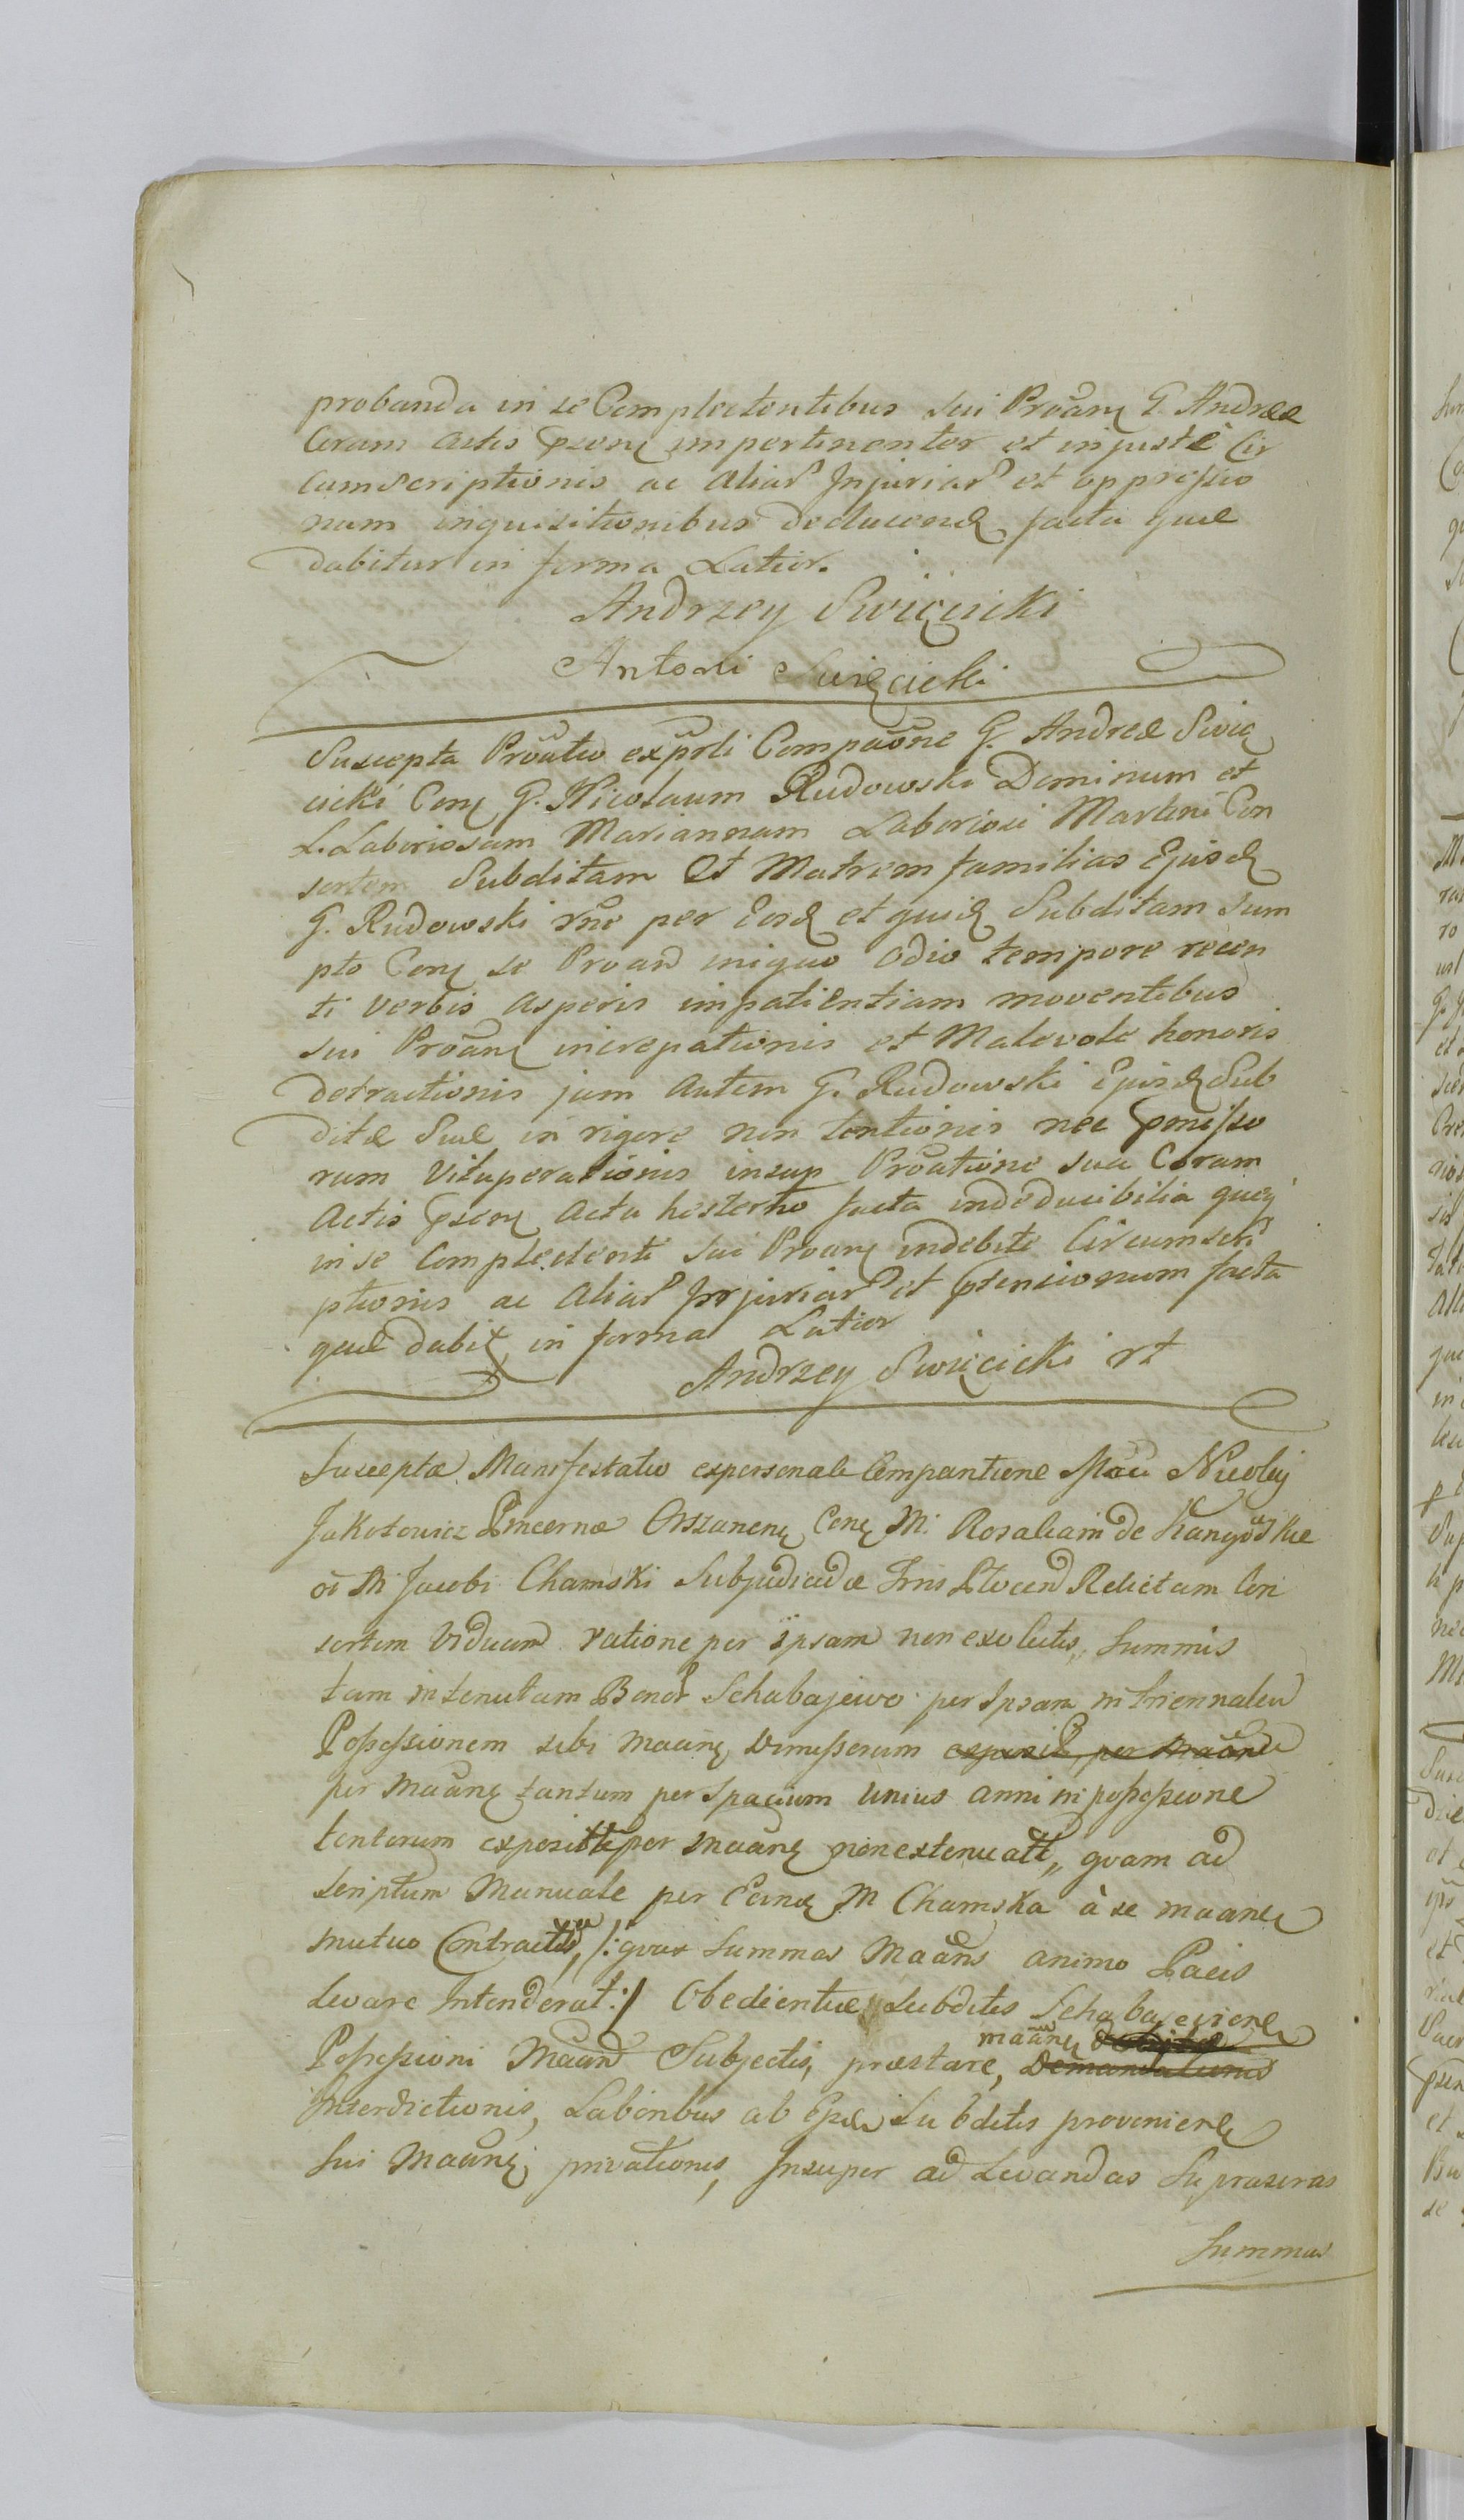 probanda in se Complectentibus sui Proãnĕ G. Andreæ
Coram actis ꝑsenĕ impertinenter et injustè Cir
cumscriptionis ac aliarᵉ Injuriarᵉ et oppreſsio
num inquisitionibus deducend facta quæ
dabitur in forma Latior.
Andrzey Swięcicki
Antoni Swięcicki
Suscepta Prõatio exp̃rli Compaõne G. Andreæ Swię
cicki Conĕ G. Nicolaum Rudowski Dominum et
L. Laboriosam Mariannam Laboriosi Martini Con
sortem Subditam Et Matrem familias Ejusd
G. Rudowski rñe per Eosd et quid Subditam sum
pto Conĕ se Proañ iniquo odio tempore recen
ti verbis asperis impatientiam moventibus
sui Proãnĕ increpationis et Malevole honoris
detractionis jam autem G. Rudowski Ejusd Sub
ditæ Suæ in rigore non tentionis nec ꝑmiſso
rum Vituperationis insup Prõatione sua Coram
Actis ꝑsenĕ Actu hesterno facta indeducibilia queĕ
in se Complectenti sui Proanĕ indebite Circumscri
ptionis ac aliarᵉ Injuriarᵉ et ꝑtensionum facta
quæ dabit in forma Latior
Andrzey Swięcicki rt
Suscepta Manifestatio expersonali Compantione Mãci Nicolai
Jakotowicz Pincernæ Orszanenĕ Conĕ M: Rosaliam de Kanigowskie
õi M Jacobi Chamski Subjudicadæ Trris Plocend Relictam Con
sortem Viduam ratione per ipsam non exolutis, Summis
tam in tenutam Bonor Schabajewo per Ipsam in triennalem
Poſseſsionem sibi maãnĕ dimiſsorum exposit, per maãnd
per Maãnĕ tantum per Spacium unius anni in poſseſsione
tentorum exposit per maãnĕ non extenuatt, quam ad
scriptum Manuale per Eand M Chamska à se maanĕ
mutuo Contractis, /: quas Summas Maãns animo Pacis
Levare Intenderat :/ Obedientiæ Subditis Schabajevienĕ
maãnĕ debitæ
Poſseſsioni Maãnd Subjectis, præstare, Demandatunis
Interdictionis, Laboribus ab Epd Subditis provenienĕ
sui Maãnĕ privationis, Insuper ad Levandas Supraseras
Summas